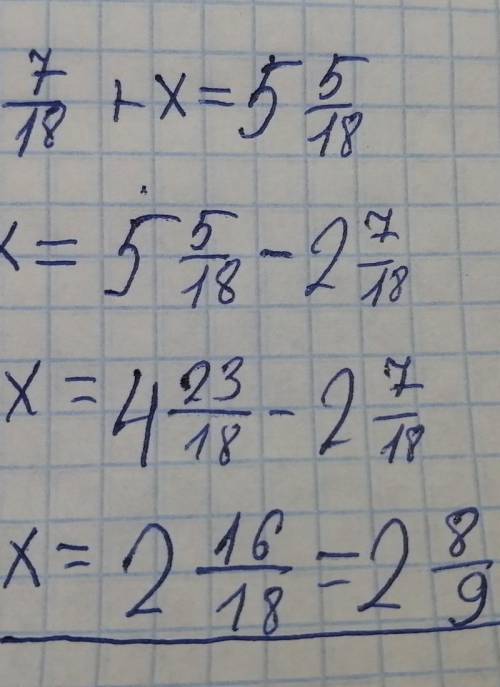 7/18 + x = 5 5/18
x = 5 5/18 - 2 7/18
x = 4 23/18 - 2 7/18
x = 2 16/18 = 2 8/9